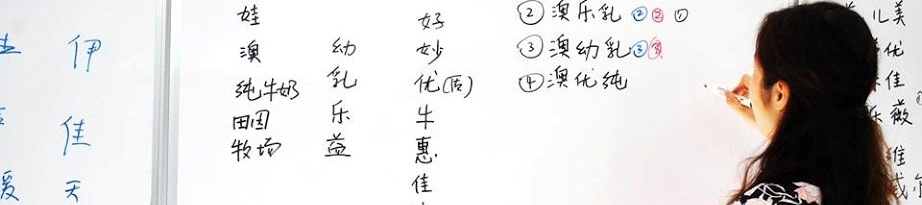 伊
佳
爱 天
娃
澳
纯牛奶
田园
牧场
幼
乳
乐
益
好
妙
优(质)
牛
惠
佳
②澳乐乳 ② ② ①
③澳幼乳 ③ ③
④澳优纯
儿美
优
佳
乐薇
维